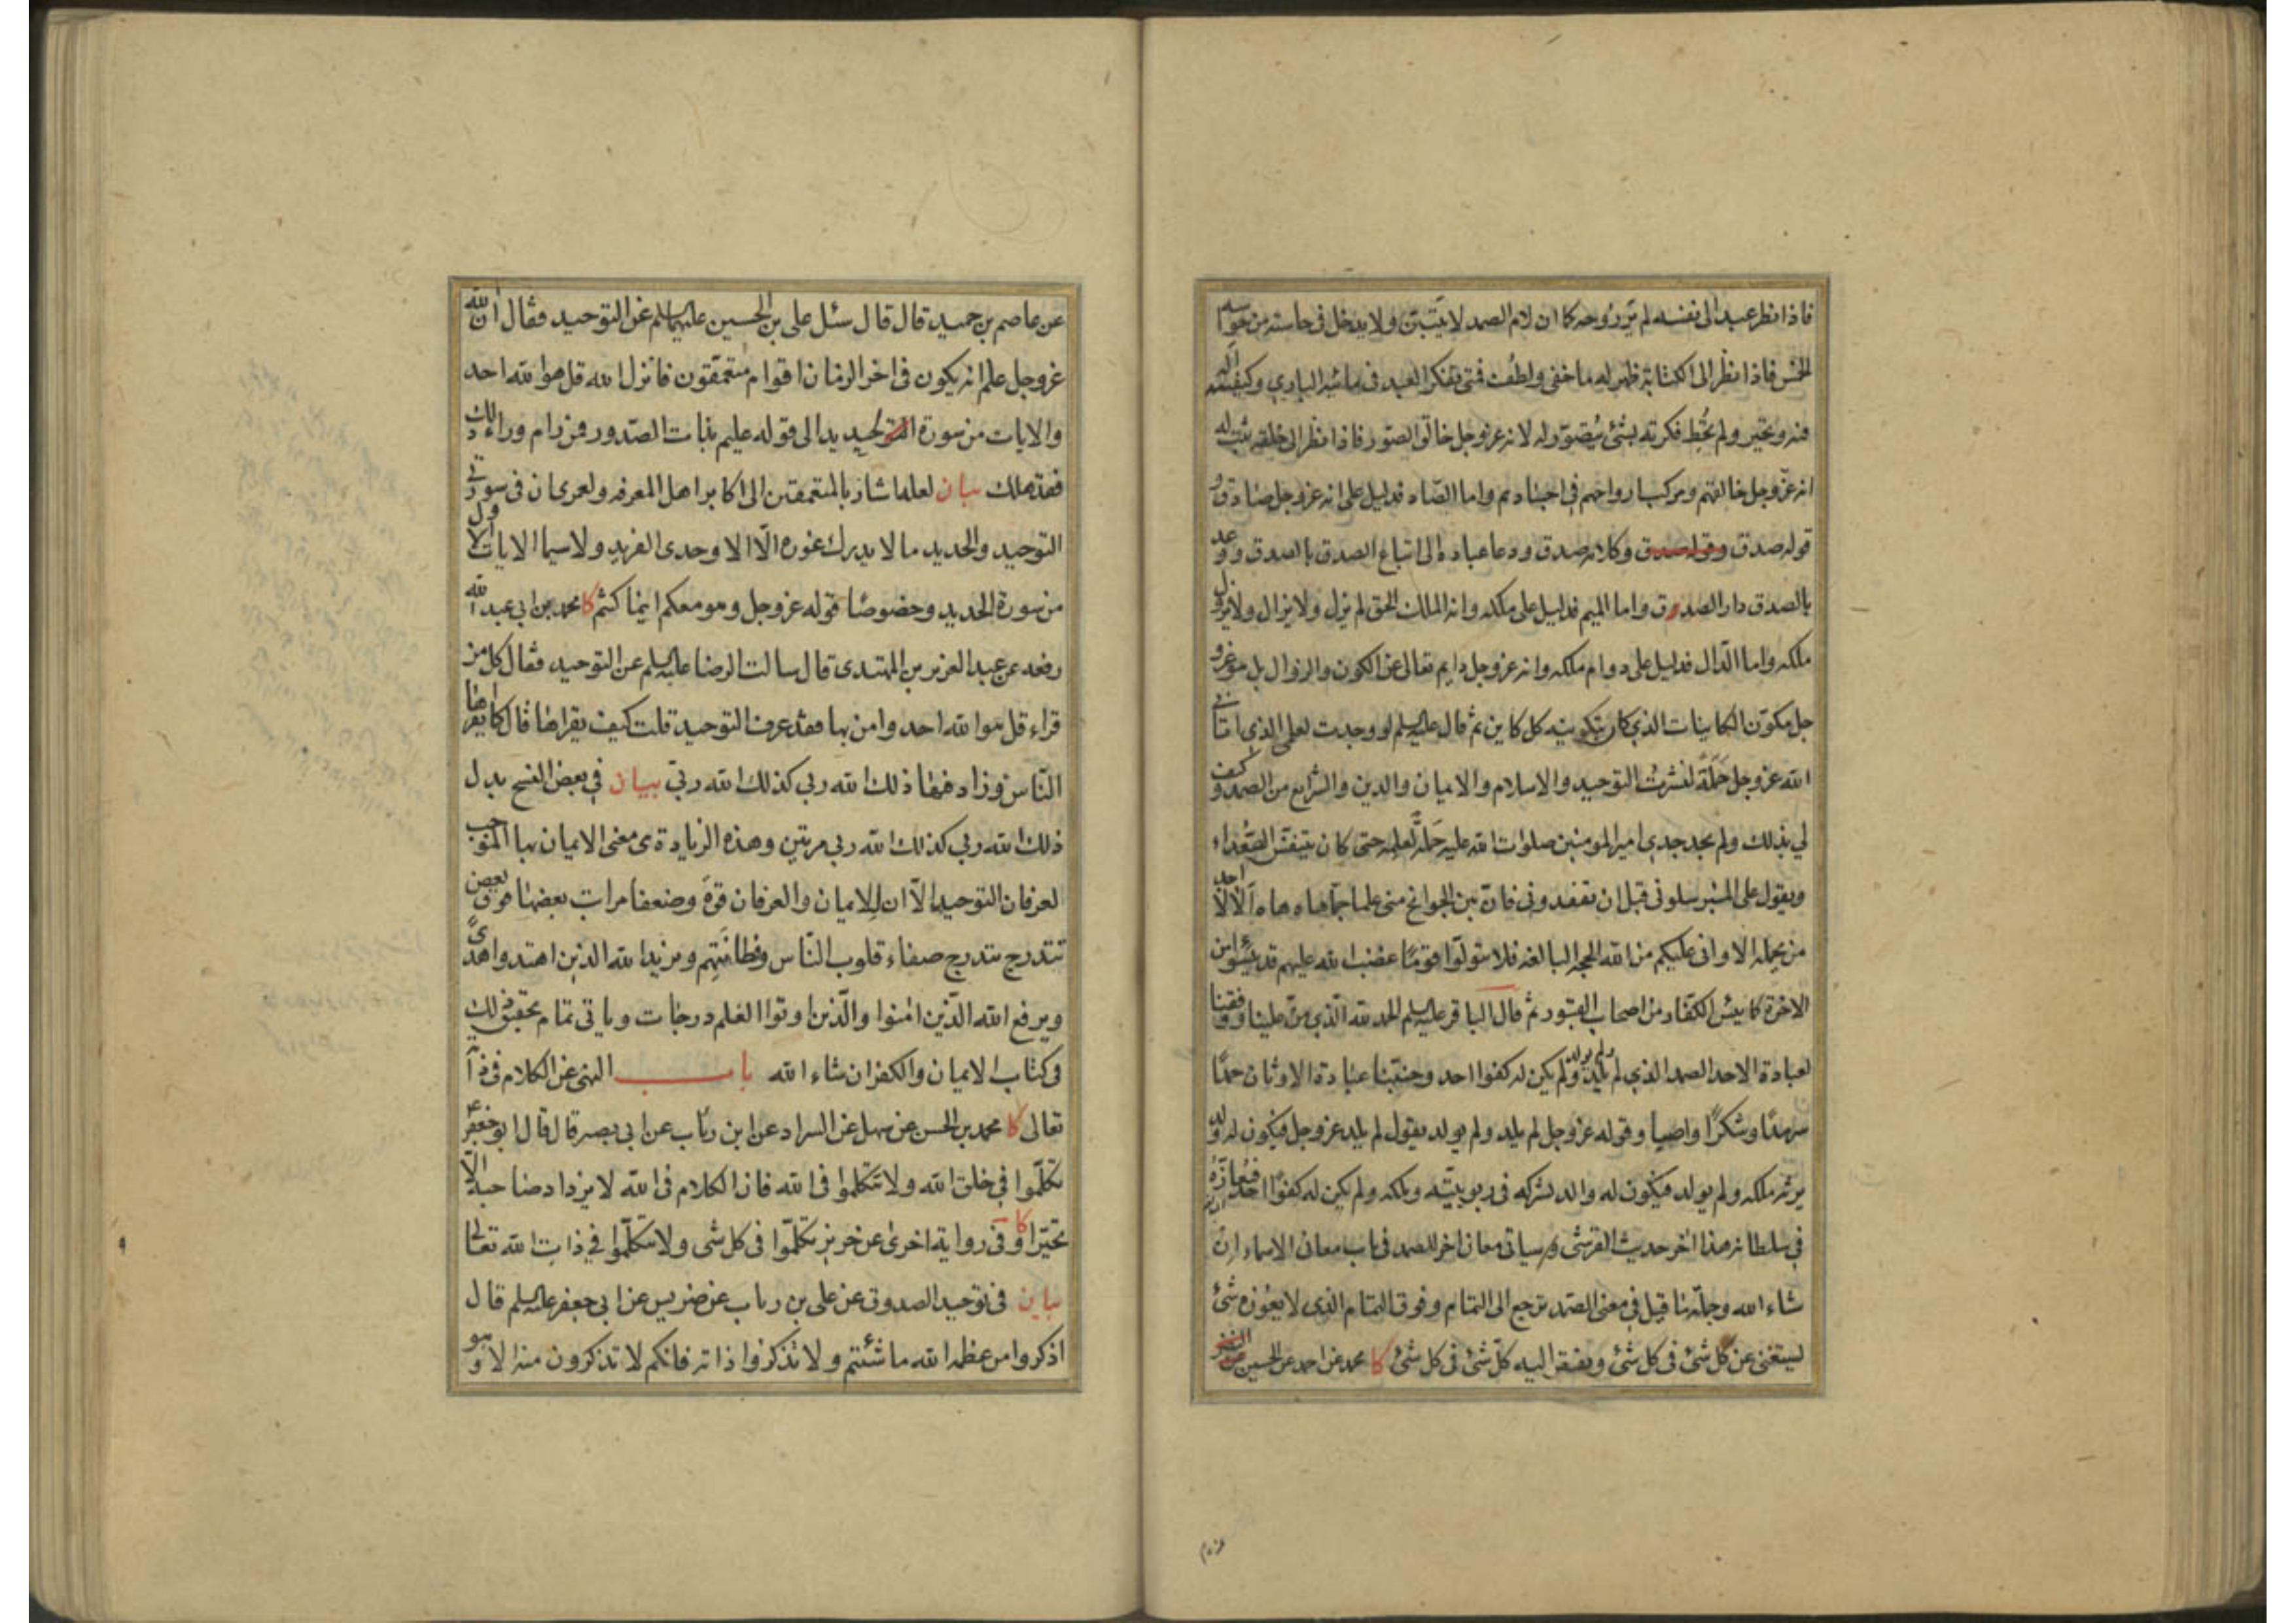 فاذا نظر عبد الى نفسه لم ير روحه كما ان لام الصمد لا يتبين ولا يدخل فى حاسة من حواسه
الخمس فاذا نظر الى الكتابة ظهر له ما خفى ولطف فمتى تفكر العبد فى مائية البارى وكيفيته اله
فيه وتحير ولم تحط فكرته بشئ يتصور له لانه عز وجل خالق الصور فاذا نظر الى خلقه يثبت له
انه عز وجل خالقهم ومركب ارواحهم فى اجسادهم واما الصاد فدليل على انه عز وجل صادق و
قوله صدق وقوله صدق وكلامه صدق ودعا عباده الى اتباع الصدق بالصدق ووعد
بالصدق دار الصدق واما الميم فدليل على ملكه وانه الملك الحق لم يزل ولا يزال ولا يزول
ملكه واما الدال فدليل على دوام ملكه وانه عز وجل دايم تعالى عن الكون والزوال بل هو عز و
جل مكون الكاينات الذى كان بتكوينه كل كاين ثم قال عليه السلم لو وجدت لعلمى الذى اتانى
الله عز وجل حملة لنشرت التوحيد والاسلام والايمان والدين والشرايع من الصمد وكيف
لى بذلك ولم يجد جدى امير المومنين صلوات الله عليه حملة لعلمه حتى كان يتنفس الصعداء
ويقول على المنبر سلونى قبل ان تفقدونى فان بين الجوانح منى علما جما هاه هاه الا لا احد
من يحمله الا وانى عليكم من الله الحجه البالغه فلا تتولوا قوما غضب الله عليهم قد يئسوا من
الاخرة كما يئس الكفار من اصحاب القبور ثم قال الباقر عليه السلم الحمد لله الذى من علينا ووفقنا
لعبادة الاحد الصمد الذى لم يلد ولم يولد ولم يكن له كفوا احد وجنبنا عبادة الاوثان حمدا
سرمدا وشكرا واصبا وقوله عز وجل لم يلد ولم يولد يقول لم يلد عز وجل فيكون له ولد
يرثه ملكه ولم يولد فيكون له والد يشركه فى ربوبيته وملكه ولم يكن له كفوا احد فيعازه
فى سلطانه هذا اخر حديث القرشى وسياتى معان اخر للصمد فى باب معانى الاسماء ان
شاء الله وجملة ما قيل فى معنى الصمد ترجع الى التمام وفوق التمام الذى لا يعوزه شئ
ليستغنى عن كل شئ فى كل شئ ويفتقر اليه كل شئ فى كل شئ كا محمد عن احمد عن الحسين عن النضر
عن عاصم بن حميد قال قال سئل على بن الحسين عليهما السلم عن التوحيد فقال ان الله
عز وجل علم انه يكون فى اخر الزمان اقوام متعمقون فانزل الله قل هو الله احد
والايات من سورة الحديد الى قوله عليم بذات الصدور فمن رام وراء ذلك
فقد هلك بيان لعله اشار بالمتعمقين الى اكابر اهل المعرفه ولعمرى ان فى سورتى
التوحيد والحديد ما لا يدرك غوره الا الاوحدى الفريد ولا سيما الايات الاول
من سورة الحديد وخصوصا قوله عز وجل وهو معكم اينما كنتم كا محمد بن ابى عبد الله
رفعه عن عبد العزيز بن المهتدى قال سالت الرضا عليه السلم عن التوحيد فقال كل من
قراء قل هو الله احد وامن بها فقد عرف التوحيد قلت كيف يقراها قال كما يقراها
الناس وزاد فيها ذلك الله ربى كذلك الله ربى بيان فى بعض النسخ بدل
ذلك الله ربى كذلك الله ربى مرتين وهذه الزيادة هى معنى الايمان بها الموجب
لعرفان التوحيد الا ان للايمان والعرفان قوة وضعفا مراتب بعضها فوق بعض
تتدرج بتدرج صفاء قلوب الناس وفطانتهم ويزيد الله الذين اهتدوا هدى
ويرفع الله الذين امنوا والذين اوتوا العلم درجات وياتى تمام تحقيق ذلك
فى كتاب الايمان والكفر ان شاء الله باب النهى عن الكلام فى ذاته
تعالى كا محمد بن الحسن عن سهل عن السراد عن ابن رئاب عن ابى بصير قال قال ابو جعفر ع
تكلموا فى خلق الله ولا تتكلموا فى الله فان الكلام فى الله لا يزداد صاحبه الا
تحيرا كا وفى رواية اخرى عن حريز تكلموا فى كل شى ولا تتكلموا فى ذات الله تعالى
بيان فى توحيد الصدوق عن على بن رياب عن ضريس عن ابى جعفر عليه السلم قال
اذكروا من عظمه الله ما شئتم ولا تذكروا ذاته فانكم لا تذكرون منه الا وهو